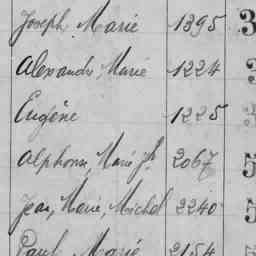 Joseph Marie 1395 3
Alexandre Marie 1224 3
Eugène 1225 3
Alphonse, Marie Jh 2067 5
Jean, Marie, Michel 2240 5
Paul Marie 2154 5